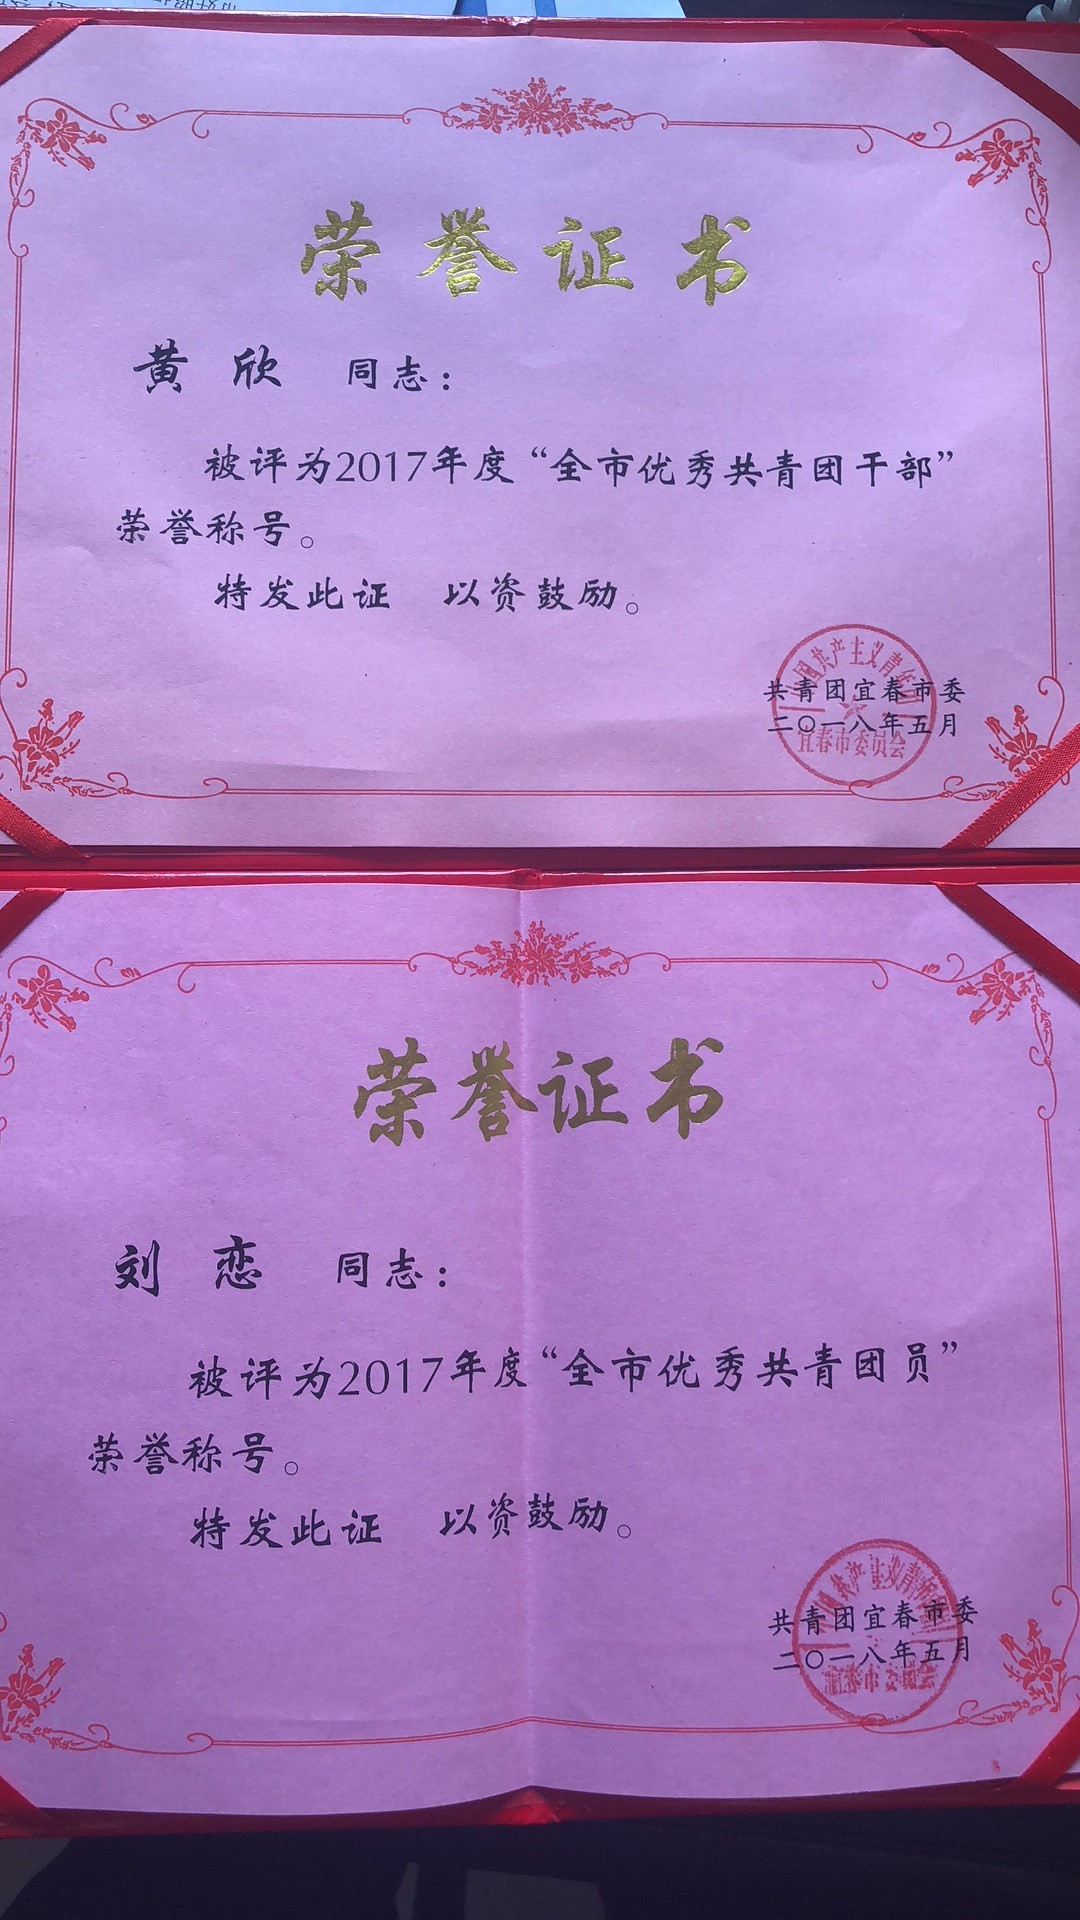 荣誉证书
黄欣 同志：
被评为2017年度“全市优秀共青团干部”
荣誉称号。
特发此证 以资鼓励。
共青团宜春市委
二〇一八年五月
宜春市委员会
荣誉证书
刘恋 同志：
被评为2017年度“全市优秀共青团员”
荣誉称号。
特发此证 以资鼓励。
共青团宜春市委
二〇一八年五月